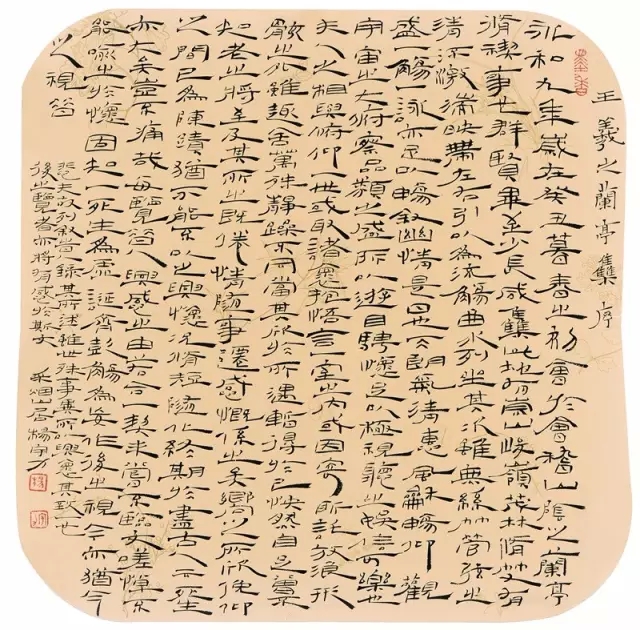 王羲之蘭亭集序
永和九年歲在癸丑暮春之初會於會稽山陰之蘭亭
脩禊事也群賢畢至少長咸集此地有崇山峻嶺茂林脩竹又有
清流激湍映帶左右引以為流觴曲水列坐其次雖無絲竹管弦之
盛一觴一詠亦足以暢敘幽情是日也天朗氣清惠風和暢仰觀
宇宙之大俯察品類之盛所以遊目騁懷足以極視聽之娛信可樂也
夫人之相與俯仰一世或取諸懷抱悟言一室之內或因寄所託放浪形
骸之外雖趣舍萬殊靜躁不同當其欣於所遇暫得於己快然自足不
知老之將至及其所之既倦情隨事遷感慨係之矣嚮之所欣俛仰
之間已為陳蹟猶不能不以之興懷況脩短隨化終期於盡古人云死生
亦大矣豈不痛哉每覽昔人興感之由若合一契未嘗不臨文嗟悼不
能喻之於懷固知一死生為虛誕齊彭殤為妄作後之視今亦猶今
之視昔
悲夫故列敘時人錄其所述雖世殊事異所以興懷其致一也
後之覽者亦將有感於斯文 山居楊守